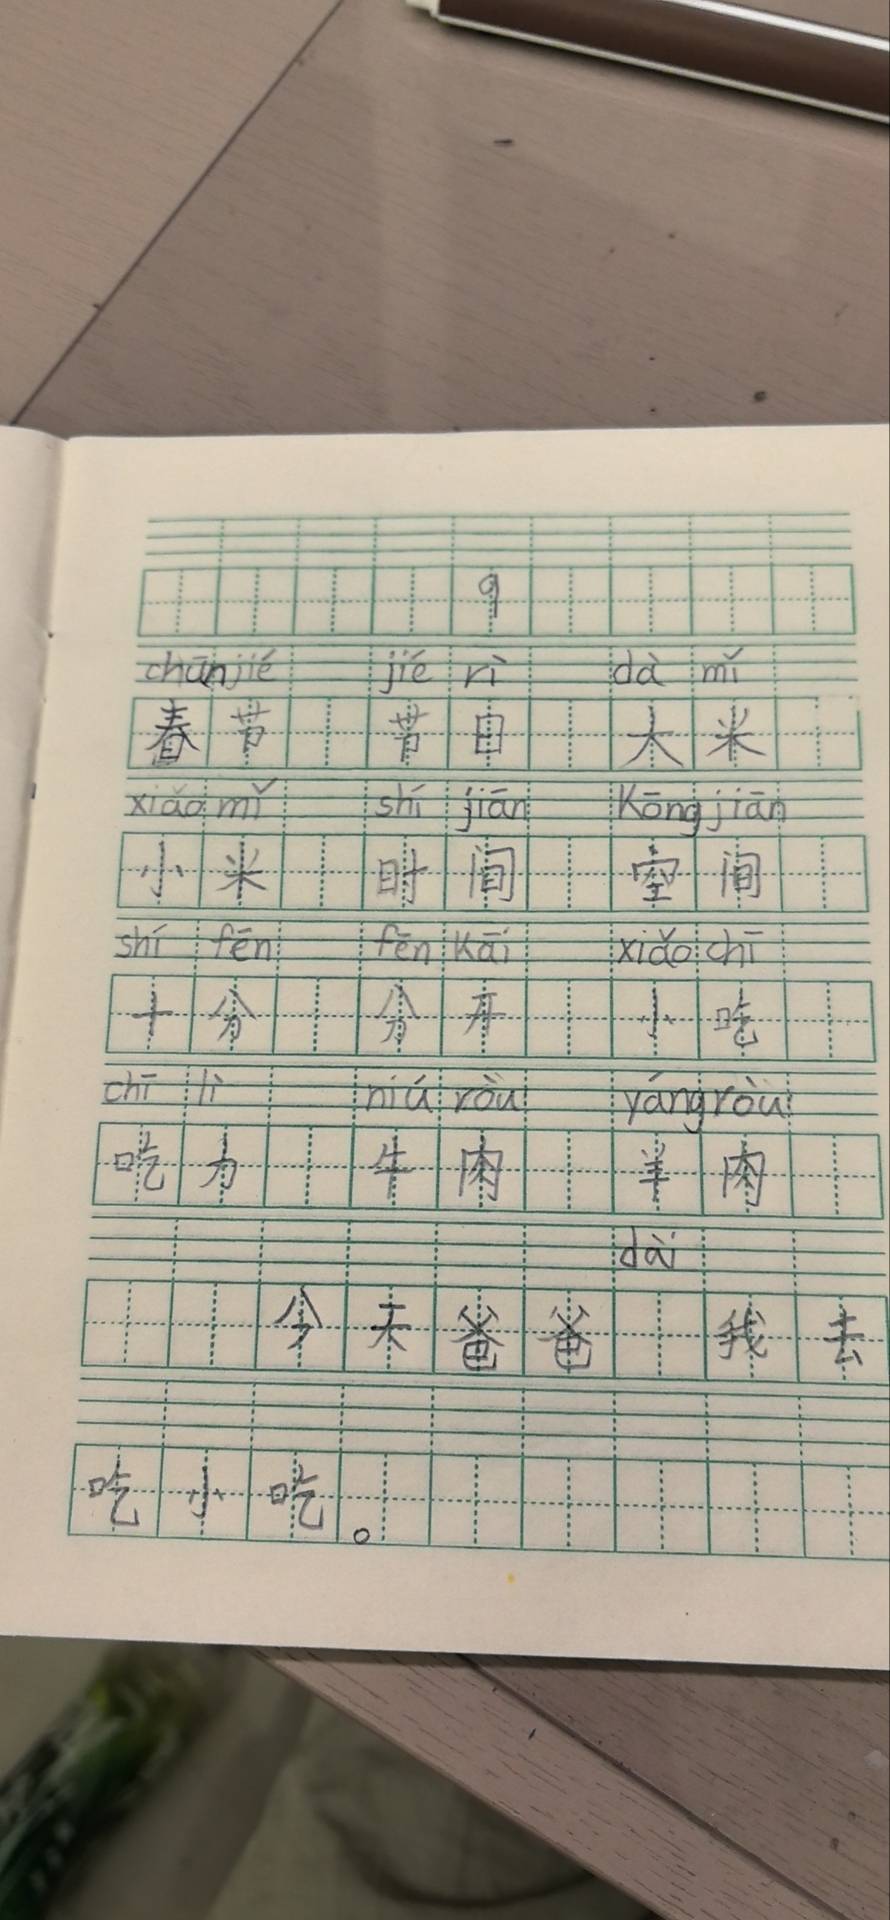 9
chūn jié jié rì dà mǐ
春节 节日 大米
xiǎo mǐ shí jiān Kōng jiān
小米 时间 空间
shí fēn fēn Kāi xiǎo chī
十分 分开 小吃
chī lì niú ròu yáng ròu
吃力 牛肉 羊肉
dài
今天爸爸 我去
吃小吃。